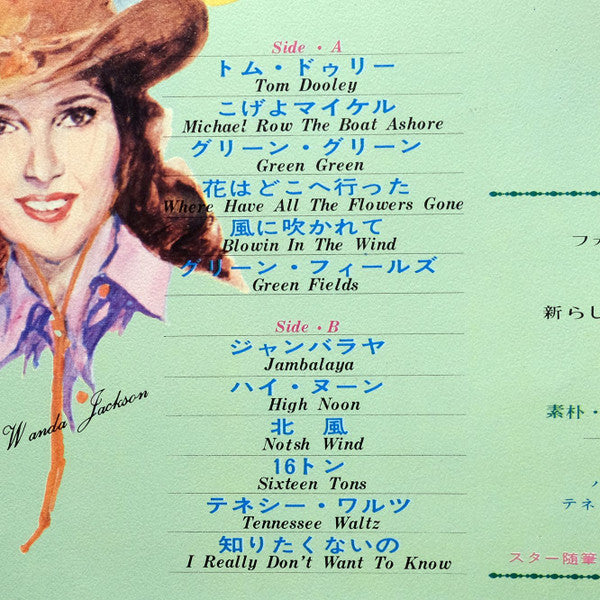 Side・A
トム・ドゥリー
Tom Dooley
こげよマイケル
Michael Row The Boat Ashore
グリーン・グリーン
Green Green
花はどこへ行った
Where Have All The Flowers Gone
風に吹かれて
Blowin In The Wind
グリーン・フィールズ
Green Fields
Side・B
ジャンバラヤ
Jambalaya
ハイ・ヌーン
High Noon
北風
Notsh Wind
16トン
Sixteen Tons
テネシー・ワルツ
Tennessee Waltz
知りたくないの
I Really Don't Want To Know
Wanda Jackson
フォ
新らし
素朴・
テネ
スター随筆